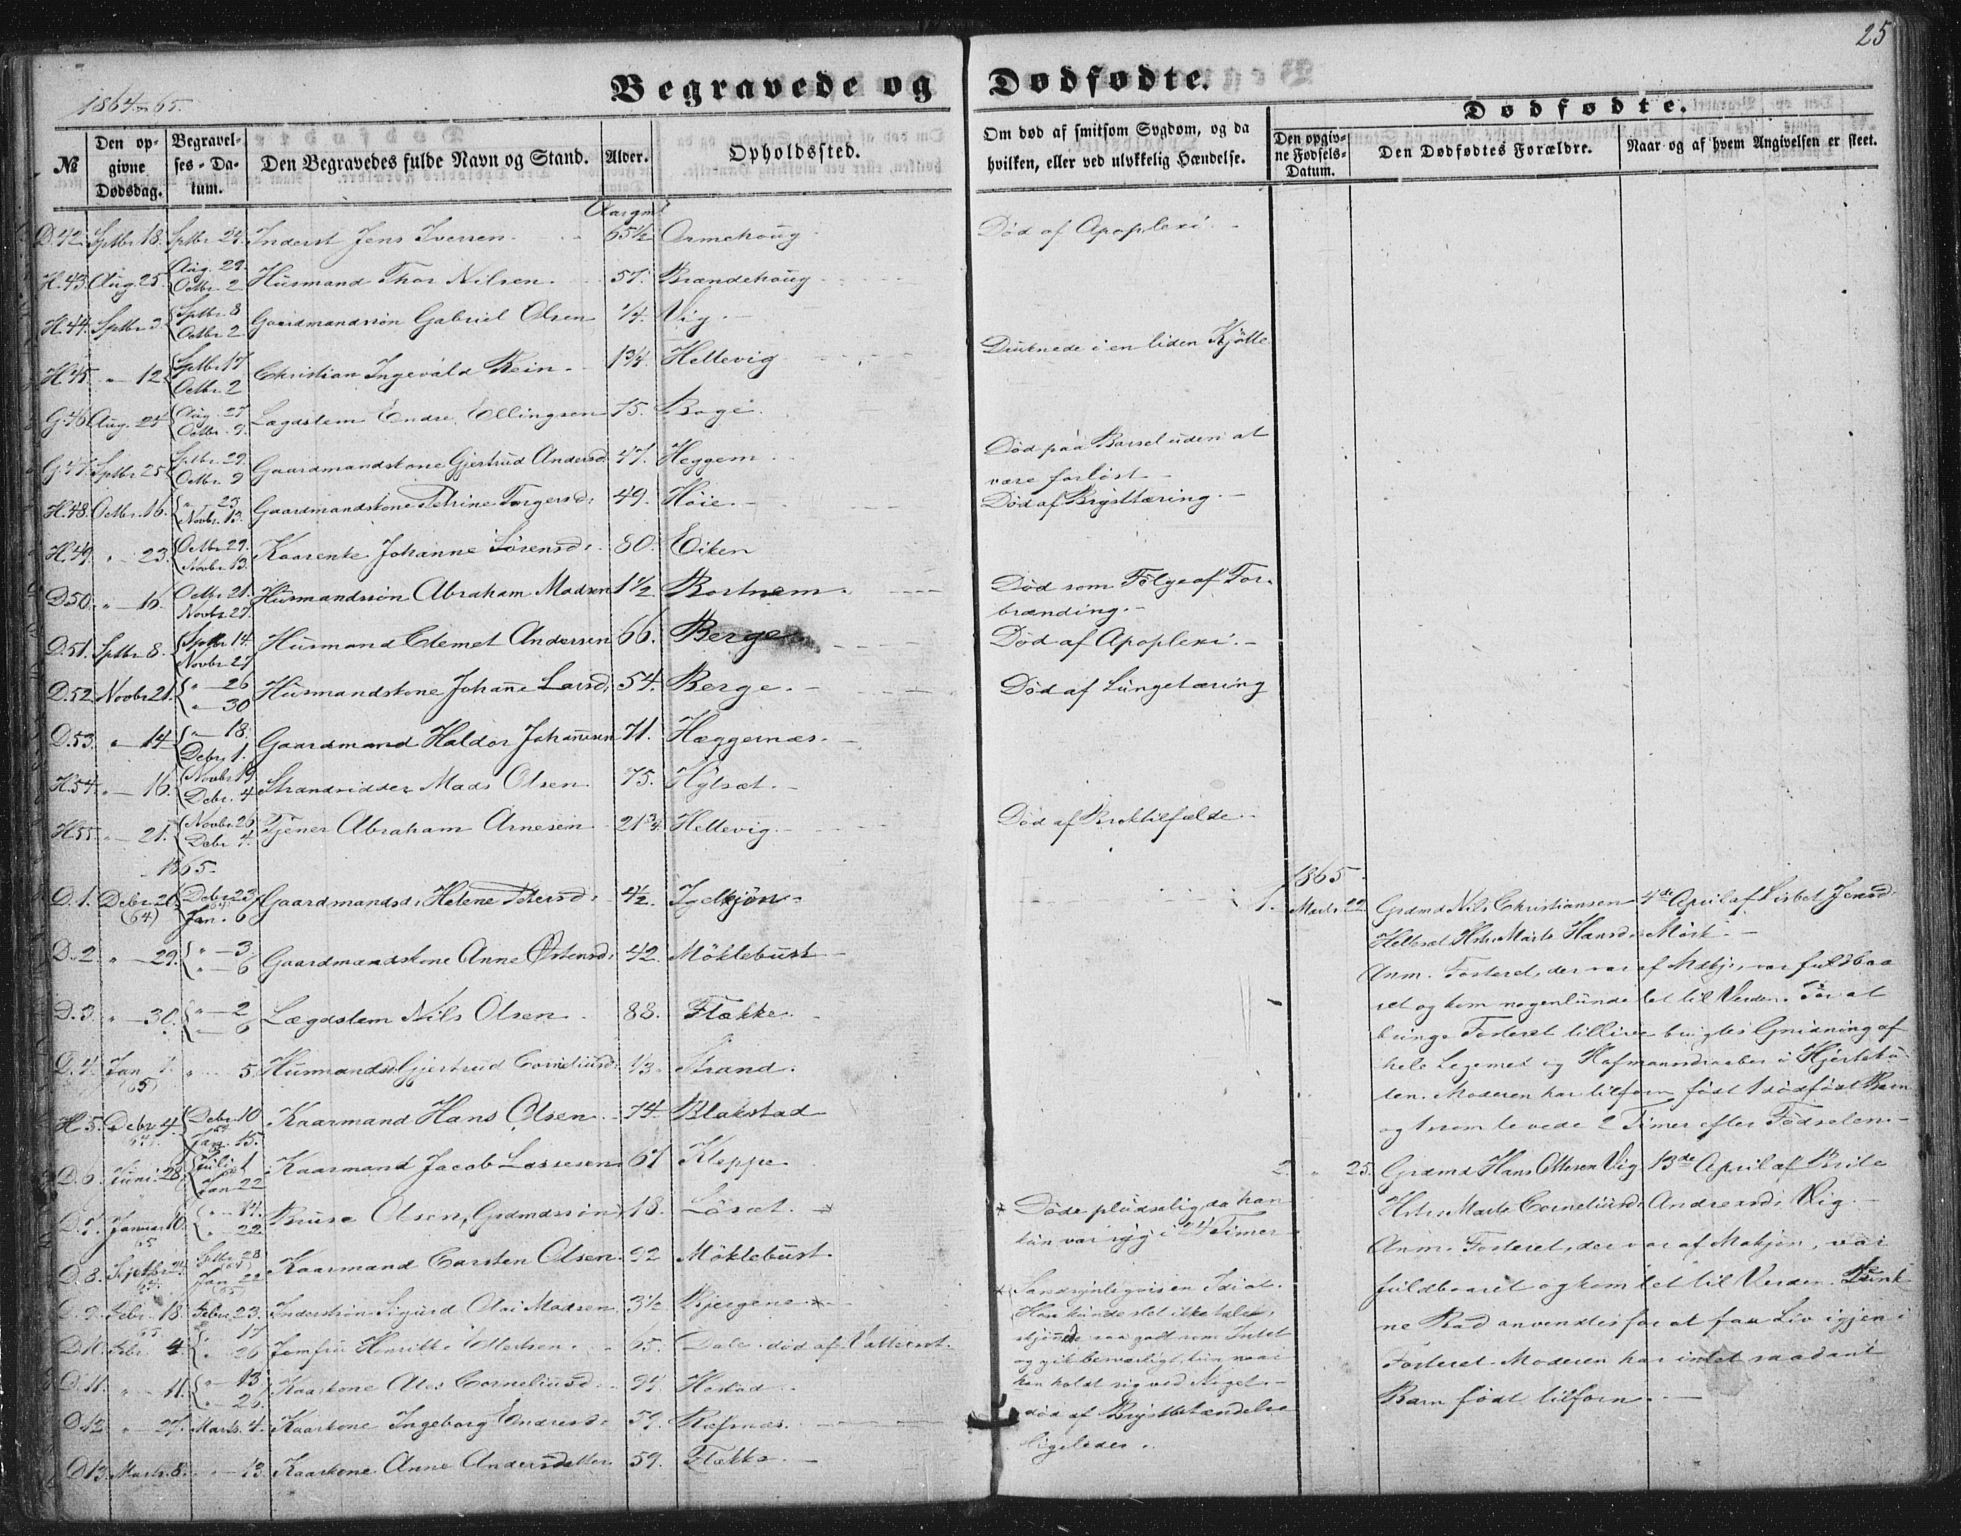 25
1864-65.
Begravede og Dødfødte.
Dødfødte.
№
Den opgivne Dødsdag.
Begravelses-Datum.
Den Begravedes fulde Navn og Stand.
Alder.
Opholdssted.
Om død af smitsom Sygdom, og da hvilken, eller ved ulykkelig Hændelse.
Den opgivne Fødsels-Datum.
Den Dødfødtes Forældre.
Naar og af hvem Angivelsen er skeet.
D.42. Sptbr 18. Sptbr 24. Inderst Jens Iversen. 65½ Armehoug Død af Apoplexi.
H.43. Aug. 25. Aug. 29. Octbr. 2 Husmand Thor Nilsen. 57. Brandehoug
H.44. Sptbr 3. Sptbr 8 Octbr 2 Gaardmandssøn Gabriel Olsen ¼. Vig.
H.45. " 12. Sptbr 17 Octbr. 2 Christian Ingevald Rein. 1¾. Hellevig Druknede i en liden Kjølle
G.46. Aug. 24 Aug. 27 Octbr. 9. Lægdslem Endre Ellingsen 75. Boge.
G.47. Sptbr 25 Sptbr. 29 Octbr. 9 Gaardmandskone Gjertrud Andersd. 47. Heggem. Død paa Barsel uden at
være forløst
H.48. Octbr. 16. " 23 Novbr. 13. Gaardmandskone Petrine Torgersd. 49. Høie. Død af Brysttæring.
H.49. " 23. Octbr 29. Novbr. 13. Kaarenke Johanne Sørensd. 80. Eiken
D50. " 16. Octbr. 21. Novbr. 27. Husmandssøn Abraham Madsen 1½ Bortnem. Død som Følge af For-
brænding.
D.51. Sptbr 8. Sptbr 14. Novbr 27 Husmand Clemet Andersen 66. Berge Død af Apoplexi.
D.52. Novbr 21. " 26 " 30 Husmandskone Johanne Larsd. 54. Berge. Død af Lungetæring
D.53. " 14 " 18. Debr. 1. Gaardmand Haldor Johannesen 71. Hæggernæs.
H.54. " 16. Novbr 19 Debr. 4 Strandsidder Mads Olsen 75. Hylsæt.
H.55. " 21. Novbr. 26 Debr 4. Tjener Abraham Arnesen 21¾. Hellevig. Død af Broktilfælde.
1865.
D.1. Debr. 21. (64) Debr. 22. Jan. 6 Gaardmandsd. Helene Petersd. 4½. Igelkjøn.
D.2. " 29. " 3. " 6 Gaardmandskone Anne Østensd. 42. Møklebust
D.3. " 30. " 2 " 6 Lægdslem Nils Olsen. 88. Flække.
D.4. Jan 1. (65) " 5. Husmandsd. Gjertrud Corneliusd. ⅓. Strand.
H5. Debr. 4. 64. Debr. 10 Jan. 15. Kaarmand Hans Olsen. 74. Blakstad
D.6. Juni 28. Juli 1 Jan 22 Kaarmand Jacob Lassesen 67 Kleppe.
D.7. Januar 10. 65 " 14. " 22. Bruse Olsen, Grdmdssøn 18. Løsæt. Døde pludselig, da han
kun var syg i 24 Timer
D.8. 64. Sptbr 28 Jan 22 (65) Kaarmand Carsten Olsen. 92 Møklebust.
D.9. Febr. 18. Febr. 23. Inderstsøn Sigurd Olai Madsen. 3½ Bjergene. Sandsynligvis en Idiot.
Han kunde slet ikke tale,
skjønnede saa godt som Intet
og gik besværligt, kun naar
han holdt sig ved Noget.
Febr. 4. 65 " 17 " 26 Jomfru 65. Dale. død af Vattersot.
D.11. " 11. " 13 " 26. Kaarkone Ales Corneliusd. 94. Hestad.
D12. " 27. Marts. 4. Kaarkone Ingeborg Endresd. 59. død af Brystbetændelse
D13. Marts. 8. " 13. Kaarkone Anne Andersdatter. 59. Flække. ligeledes.
1865.
1. Marts. 22. Grdmd Nils Christiansen 4de April af Lisbet Jensd.
Hellesæt. Hstr. Marte Hansd. Mörk.
Anm. Fosteret, der var af Mandkjøn, var fuldbaa-
ret og kom nogenlunde let til Verden. For at
bringe Fosteret tillive brugtes Gnidning af
hele Legemet og Hofmannsdraaber i Hjertekú-
len. Moderen har tilforn født 1 dødfødt Barn
og 1 som levede 2 Timer efter Fødselen.
2. " 25. Grdmd Hans Ottesen Vig 13de April af Brite
Hstr. Marte Corneliusd. Andersd. Vig.
Anm. Fosteret, der var af Mandkjøn, var
fuldbaaret og kom let til Verden.
Bad anvendtes for at faa Liv igjen i
Fosteret. Moderen har intet saadant
Barn født tilforn.